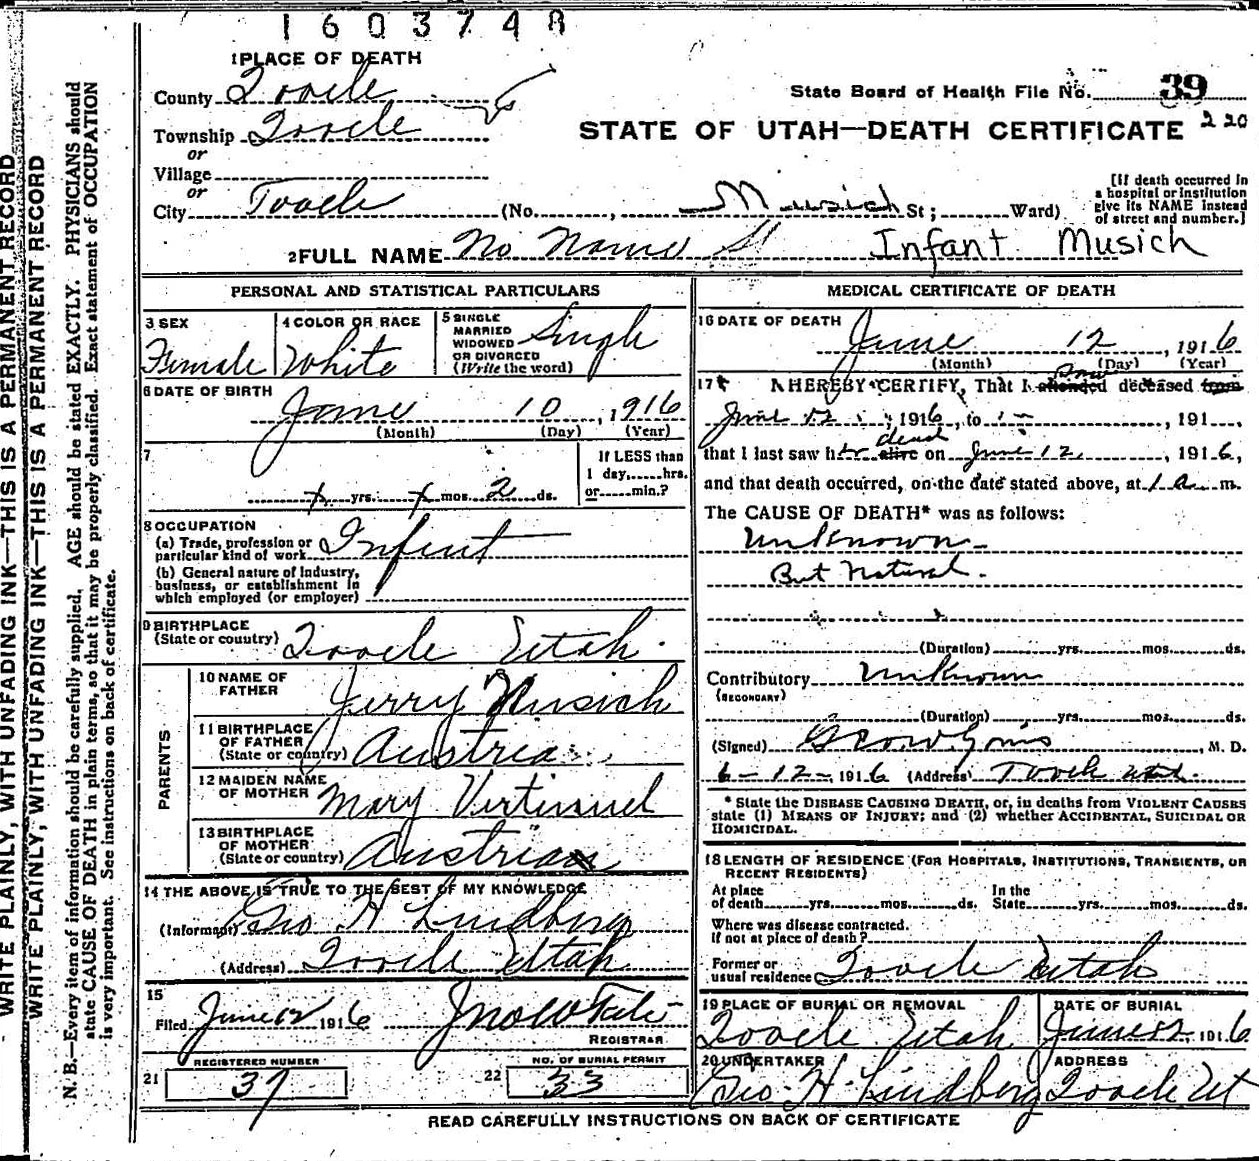 1603748
1 PLACE OF DEATH
County Tooele
State Board of Health File No. 39
220
Township Tooele
STATE OF UTAH—DEATH CERTIFICATE
or
Village
or
City Tooele (No. , Musich St ; Ward)
[If death occurred in a hospital or institution give its NAME instead of street and number.]
2 FULL NAME No Name Infant Musich
PERSONAL AND STATISTICAL PARTICULARS
3 SEX Female
4 COLOR OR RACE White
5 SINGLE MARRIED WIDOWED OR DIVORCED (Write the word) Single
6 DATE OF BIRTH
June 10, 1916
(Month) (Day) (Year)
7 If LESS than 1 day, hrs. or min.?
x yrs. x mos. 2 ds.
8 OCCUPATION
(a) Trade, profession or particular kind of work Infent
(b) General nature of industry, business, or establishment in which employed (or employer)
9 BIRTHPLACE (State or country) Tooele Utah.
PARENTS
10 NAME OF FATHER Jerry Musich
11 BIRTHPLACE OF FATHER (State or country) Austria
12 MAIDEN NAME OF MOTHER Mary
13 BIRTHPLACE OF MOTHER (State or country) Austria
14 THE ABOVE IS TRUE TO THE BEST OF MY KNOWLEDGE
(Informant) Geo H Lindberg
(Address) Tooele Utah
15
Filed June 12 1916
REGISTRAR
REGISTERED NUMBER NO. OF BURIAL PERMIT
21 37 22 33
MEDICAL CERTIFICATE OF DEATH
16 DATE OF DEATH
June 12, 1916
(Month) (Day) (Year)
17 I HEREBY CERTIFY, That I attended saw deceased from
June 12, 1916, to , 191 ,
that I last saw her alive dead on June 12, 1916,
and that death occurred, on the date stated above, at 1 a. m.
The CAUSE OF DEATH* was as follows:
Unknown
But Natural.
(Duration) yrs. mos. ds.
Contributory Unknown
(SECONDARY)
(Duration) yrs. mos. ds.
(Signed) , M. D.
6-12-, 1916 (Address) Tooele Utah.
* State the DISEASE CAUSING DEATH, or, in deaths from VIOLENT CAUSES
state (1) MEANS OF INJURY; and (2) whether ACCIDENTAL, SUICIDAL OR
HOMICIDAL.
18 LENGTH OF RESIDENCE (FOR HOSPITALS, INSTITUTIONS, TRANSIENTS, OR
RECENT RESIDENTS)
At place of death yrs. mos. ds. In the State yrs. mos. ds.
Where was disease contracted.
If not at place of death?
Former or usual residence Tooele Utah
19 PLACE OF BURIAL OR REMOVAL DATE OF BURIAL
Tooele Utah June 12, 1916
20 UNDERTAKER ADDRESS
Geo. H. Lindberg Tooele Ut
READ CAREFULLY INSTRUCTIONS ON BACK OF CERTIFICATE
WRITE PLAINLY, WITH UNFADING INK—THIS IS A PERMANENT RECORD
WRITE PLAINLY, WITH UNFADING INK—THIS IS A PERMANENT RECORD
N. B.—Every item of information should be carefully supplied. AGE should be stated EXACTLY. PHYSICIANS should
state CAUSE OF DEATH in plain terms, so that it may be properly classified. Exact statement of OCCUPATION
is very important. See instructions on back of certificate.